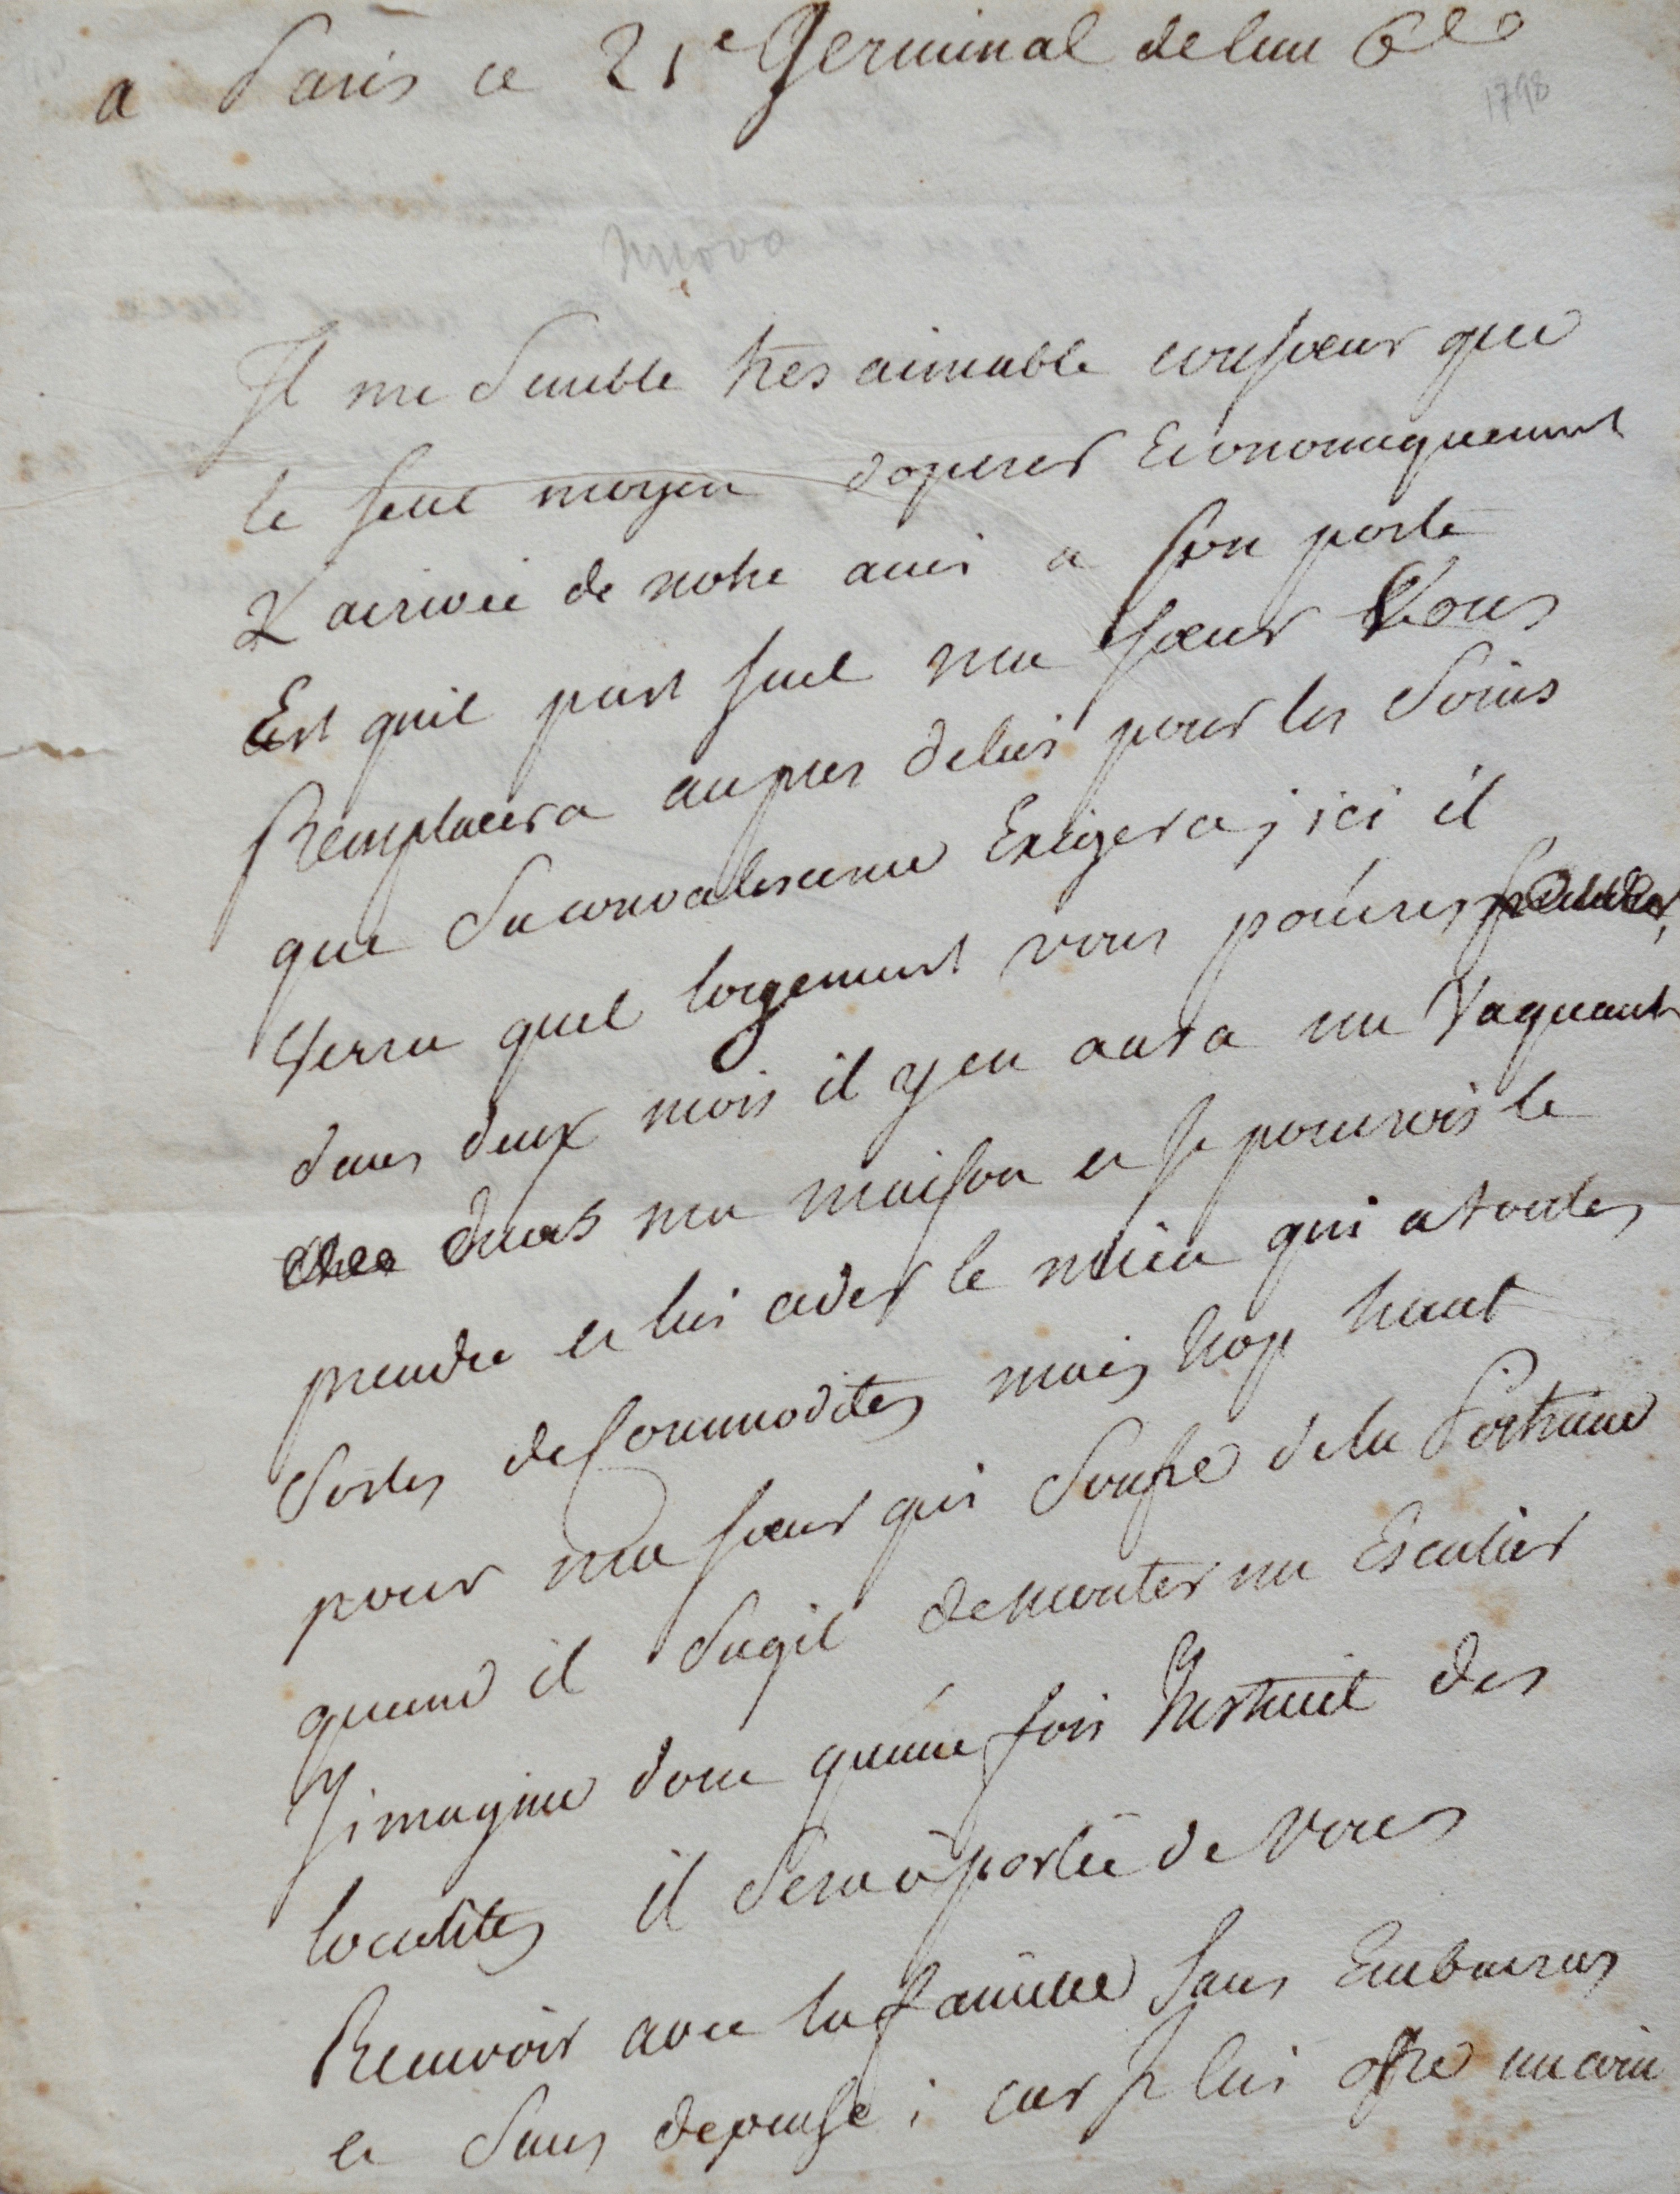 a Paris ce 21e Germinal de lan 6eo
1798
Il me Semble tres aimable consoeur que
le seul moyen doperer Economiquement
L'arrivée de notre ami a son poste
Est quil part seul ma soeur Vous
Remplacera aupres delui pour les Soins
que Sa convalescence Exigera, ici il
Verra quel logement vous pourés
dans deux mois il y en aura un Vaquant
dans ma maison et je pourrois le
prendre et lui ceder le mien qui a toutes
Sortes de Commodites mais trop haut
pour ma soeur qui Soufre dela Poitrine
quand il Sagit demonter un Escalier
J'imagine donc quune fois Instruit des
localites il Sera à portée de vous
Recevoir avec la famille sans Embarras
et Sans depense ; car je lui ofre un coin